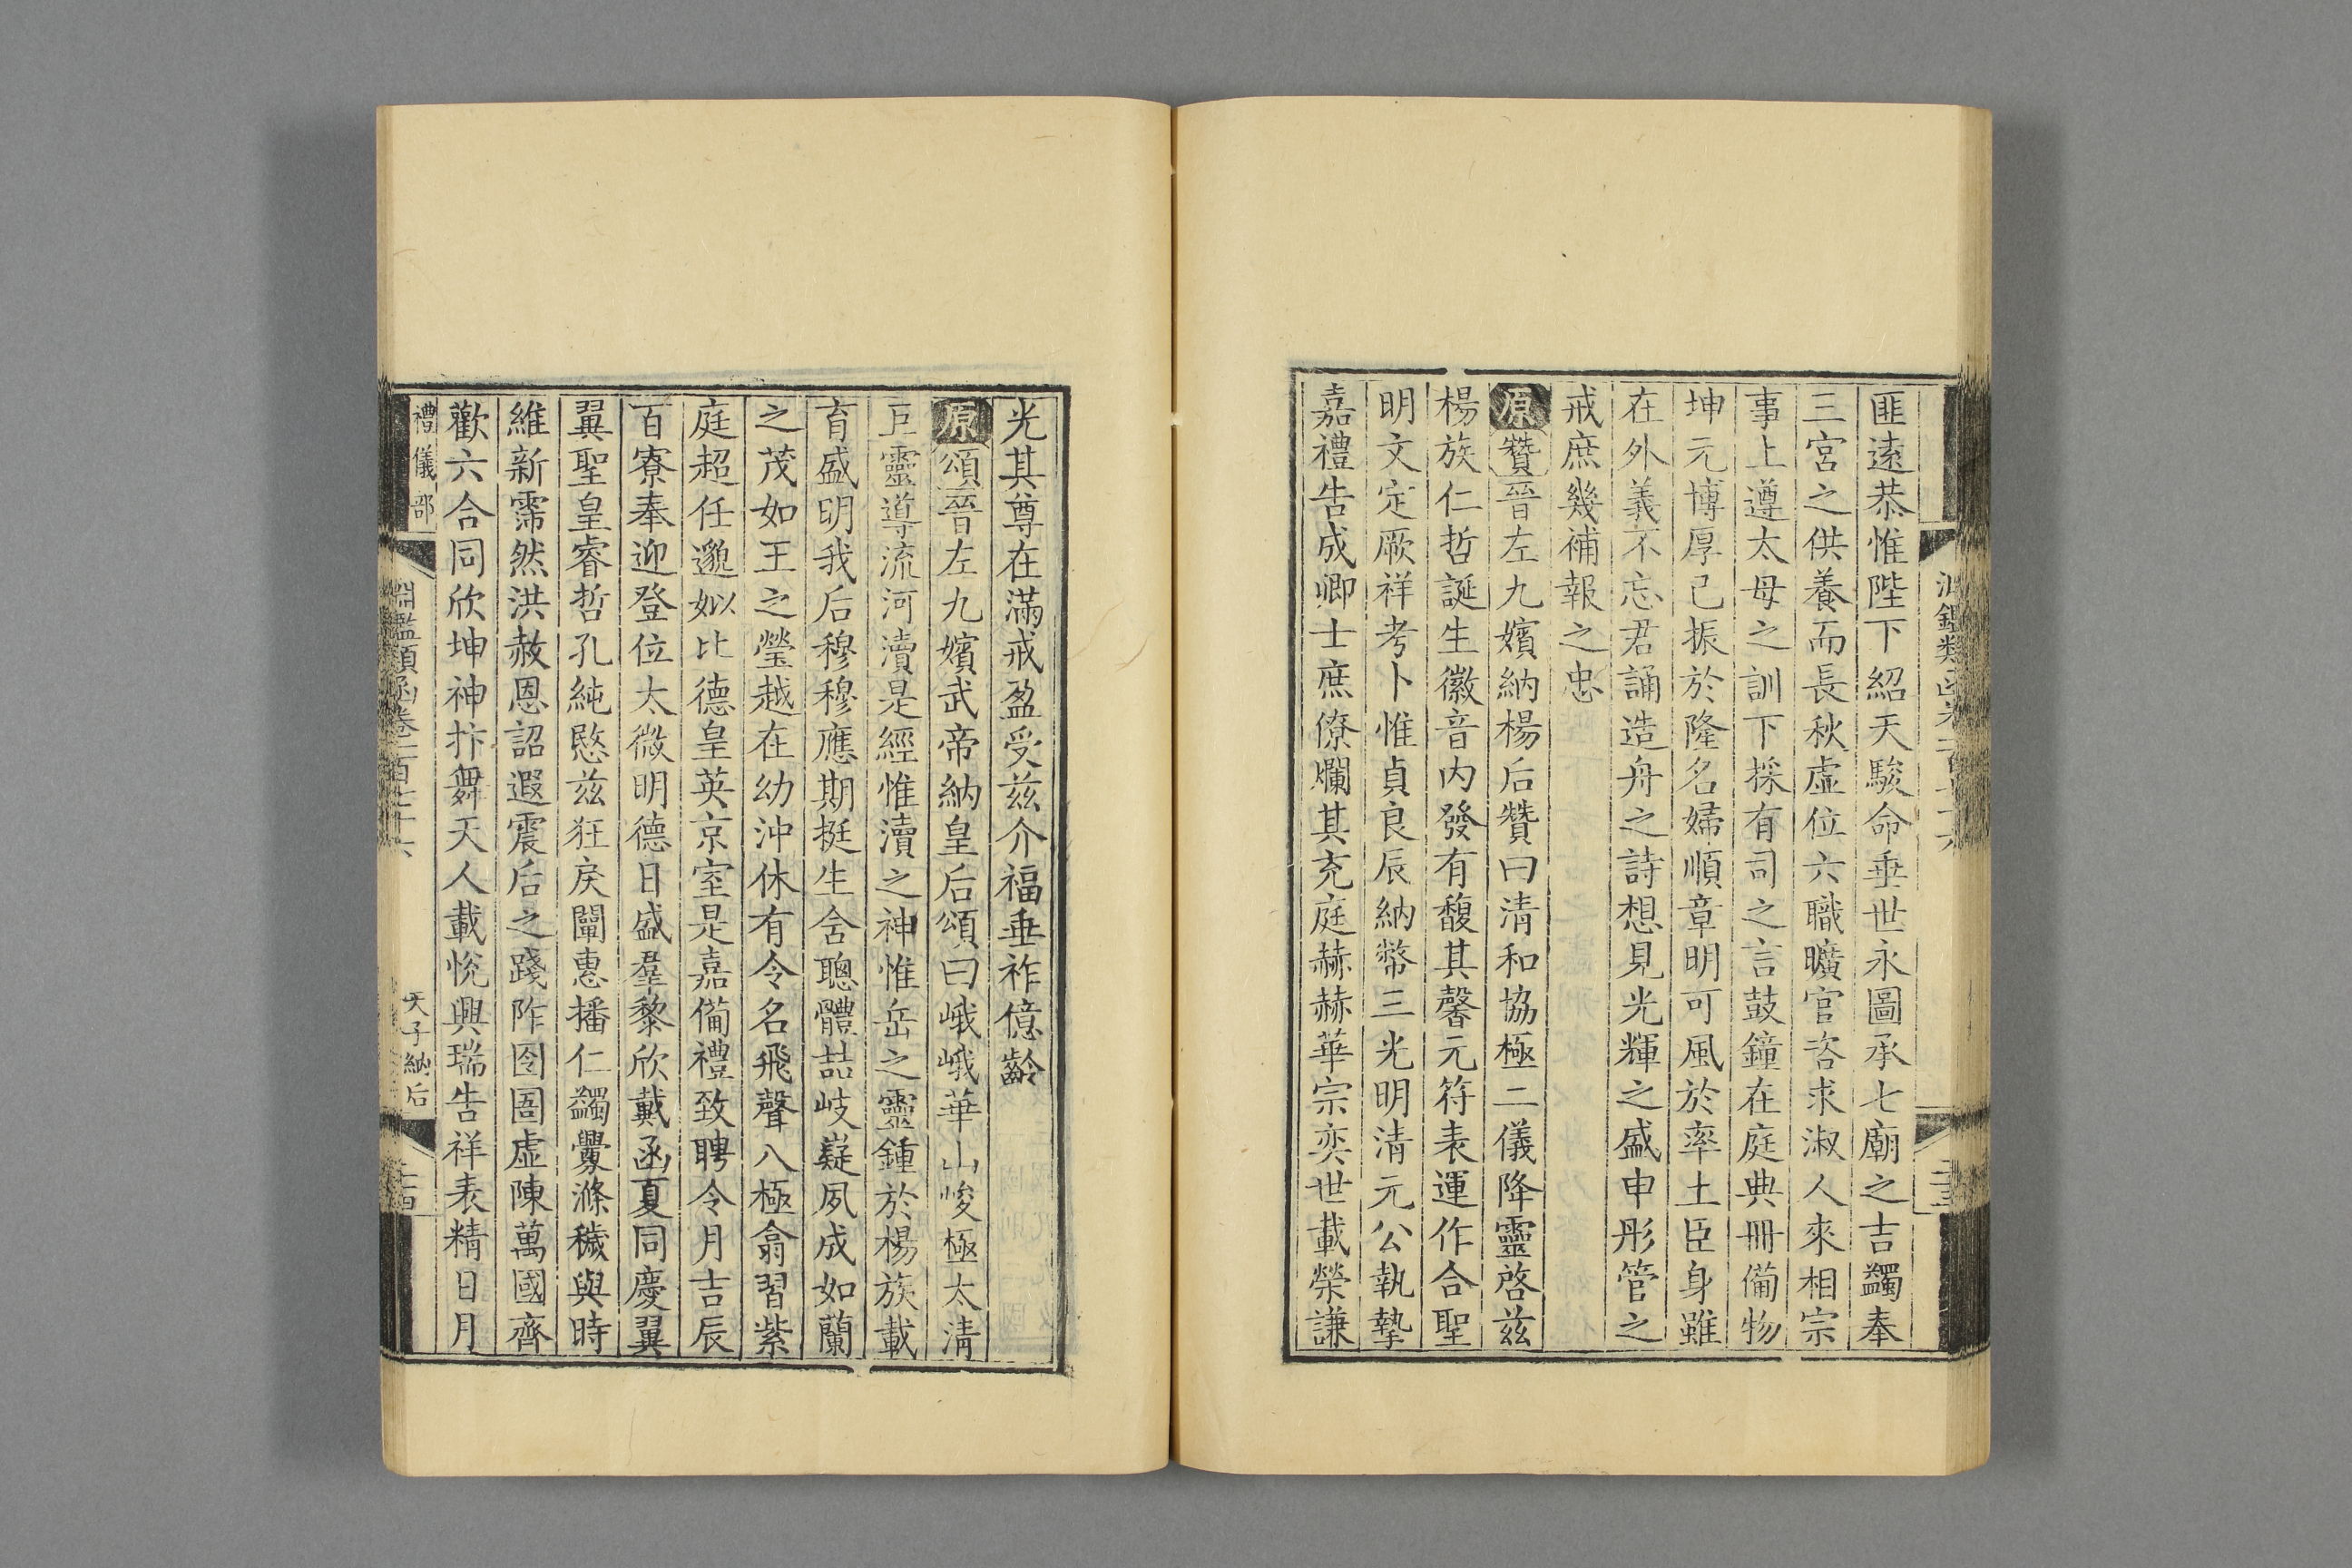 匪遠恭惟陛下紹天駿命垂世永圖承七廟之吉蠲奉
三宮之供養而長秋虛位六職曠官咨求淑人來相宗
事上遵太母之訓下採有司之言鼓鐘在庭典冊備物
坤元博厚已振於隆名婦順章明可風於率土臣身雖
在外義不忘君誦造舟之詩想見光輝之盛申彤管之
戒庶幾補報之忠
原贊晉左九嬪納楊后贊曰清和協極二儀降靈啓茲
楊族仁哲誕生徽音內發有馥其馨元符表運作合聖
明文定厥祥考卜惟貞良辰納幣三光明清元公執摯
嘉禮告成卿士庶僚爛其充庭赫赫華宗奕世載榮謙
光其尊在滿戒盈受茲介福垂祚億齡
原頌晉左九嬪武帝納皇后頌曰峨峨華山峻極太清
巨靈導流河瀆是經惟瀆之神惟岳之靈鍾於楊族載
育盛明我后穆穆應期挺生含聰體喆岐嶷夙成如蘭
之茂如玉之瑩越在幼沖休有令名飛聲八極翕習紫
庭超任邈姒比德皇英京室是嘉備禮致聘令月吉辰
百寮奉迎登位太微明德日盛羣黎欣戴函夏同慶翼
翼聖皇睿哲孔純愍茲狂戾闡惠播仁蠲釁滌穢與時
維新霈然洪赦恩詔遐震后之踐阼囹圄虛陳萬國齊
歡六合同欣坤神抃舞天人載悅興瑞告祥表精日月
禮儀部
淵鑑類函卷一百七十六
天子納后